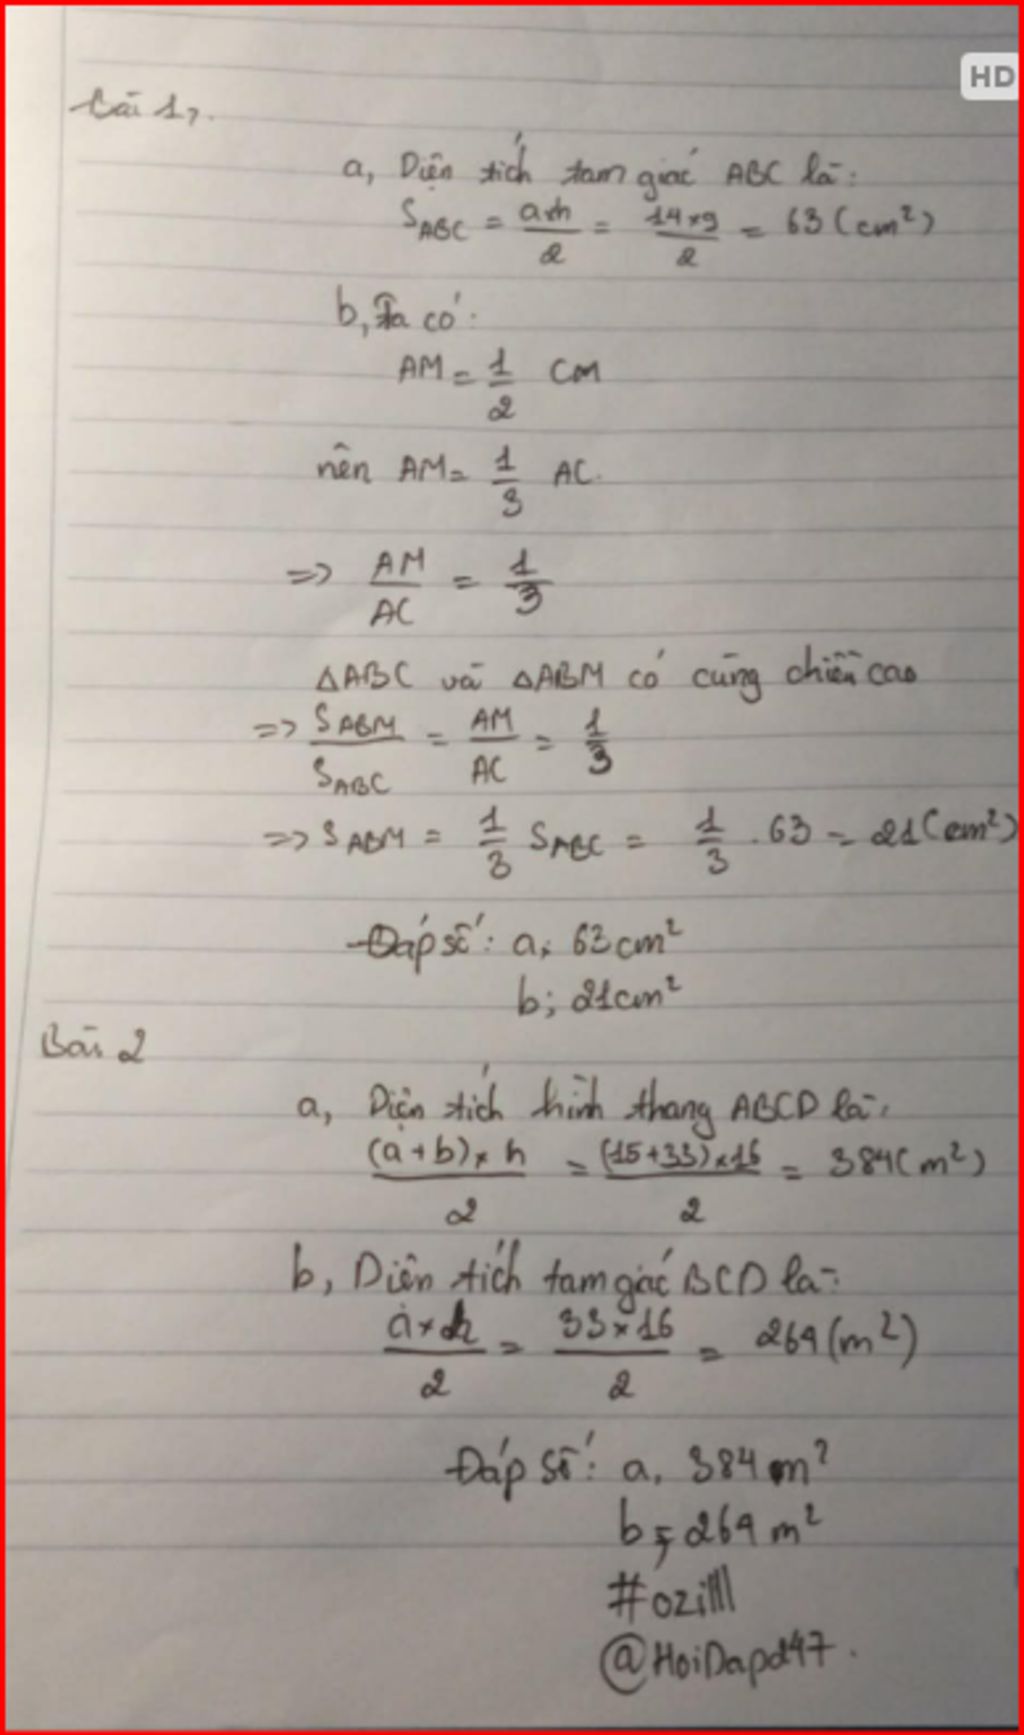 HD
Bài 1,
a, Diện tích tam giác ABC là:
S_ABC = a×h/2 = 14×9/2 = 63 (cm²)
b, Ta có:
AM = 1/2 CM
nên AM = 1/3 AC.
=> AM/AC = 1/3
△ABC và △ABM có cùng chiều cao
=> S_ABM/S_ABC = AM/AC = 1/3
=> S_ABM = 1/3 S_ABC = 1/3 . 63 = 21 (cm²)
Đáp số: a, 63 cm²
b; 21 cm²
Bài 2
a, Diện tích hình thang ABCD là:
(a+b)×h/2 = (15+33)×16/2 = 384 (m²)
b, Diện tích tam giác BCD là:
a×h/2 = 33×16/2 = 264 (m²)
Đáp số: a, 384 m²
b; 264 m²
#ozilll
@HoiDap247.